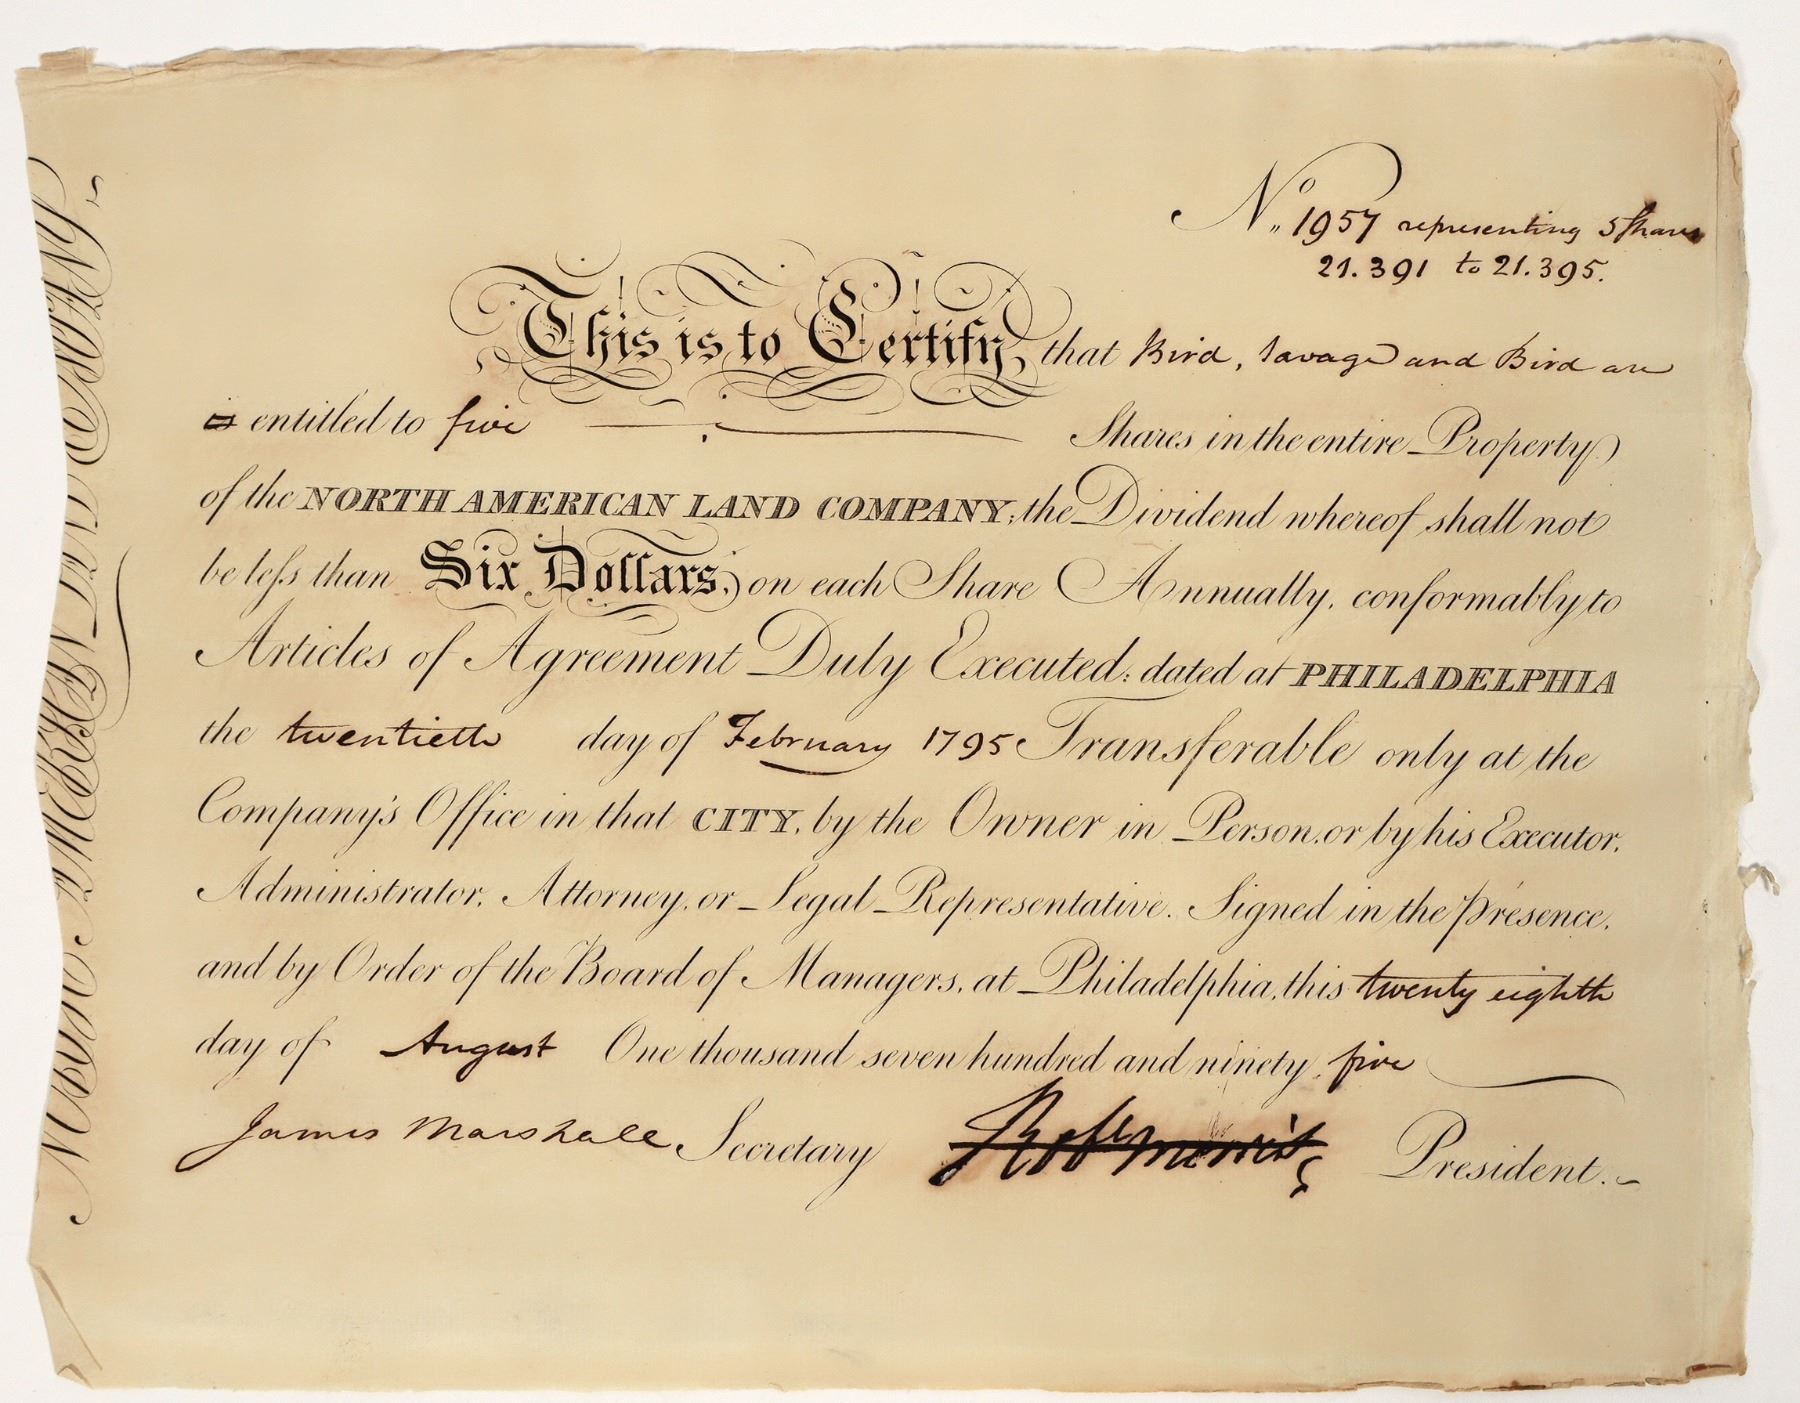 No. 1957 representing 5 Shares
21.391 to 21.395.
This is to Certify, that Bird, Savage and Bird are
is entitled to five Shares in the entire Property
of the NORTH AMERICAN LAND COMPANY; the Dividend whereof shall not
be less than Six Dollars, on each Share Annually, conformably to
Articles of Agreement Duly Executed: dated at PHILADELPHIA
the twentieth day of February 1795 Transferable only at the
Company's Office in that CITY, by the Owner in Person, or by his Executor,
Administrator, Attorney, or Legal Representative. Signed in the presence,
and by Order of the Board of Managers, at Philadelphia, this twenty eighth
day of August One thousand seven hundred and ninety five
James Marshall Secretary Robt Morris President.